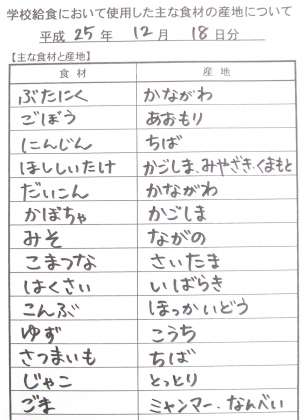 学校給食において使用した主な食材の産地について
平成 25 年 12 月 18 日分
【主な食材と産地】
食材 産地
ぶたにく かながわ
ごぼう あおもり
にんじん ちば
ほししいたけ かごしま、みやざき・くまもと
だいこん かながわ
かぼちゃ かごしま
みそ ながの
こまつな さいたま
はくさい いばらき
こんぶ ほっかいどう
ゆず こうち
さつまいも ちば
じゃこ とっとり
ごま ミャンマー・なんべい